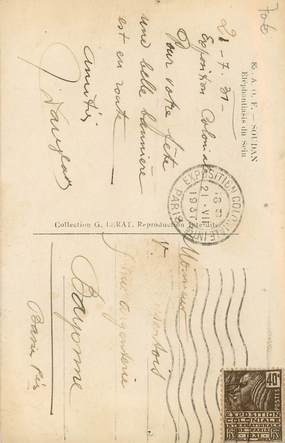 85. A. O. F. — SOUDAN
Eléphantiasis du Sein
21-7-31-
Exposition Coloniale
Pour votre fête
une belle bannière
est en route
amitiés
Collection G. LERAT, Reproduction interdite
EXPOSITION COLONIALE INTle
PARIS
21 VII
1931
Monsieur
Argenterie
Bayonne
Basses Pyr
40c
POSTES
EXPOSITION
COLONIALE
INTERNATIONALE
PARIS 1931